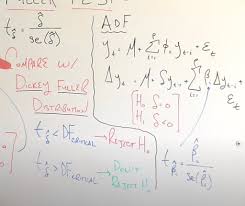 t_δ̂ = δ̂ / se(δ̂)
COMPARE W/
DICKEY FULLER
DISTRIBUTION
t_δ̂ < DF_CRITICAL → REJECT H₀
t_δ̂ > DF_CRITICAL → DON'T REJECT H₀
ADF
y_t = μ + Σ_{i=1}^{p} φ_i y_{t-i} + ε_t
Δy_t = μ + δy_{t-1} + Σ_{i=1} β_i Δy_{t-i} + ε_t
H₀ δ=0
H₁ δ<0
t_β̂_i = β̂_i / se(β̂_i)